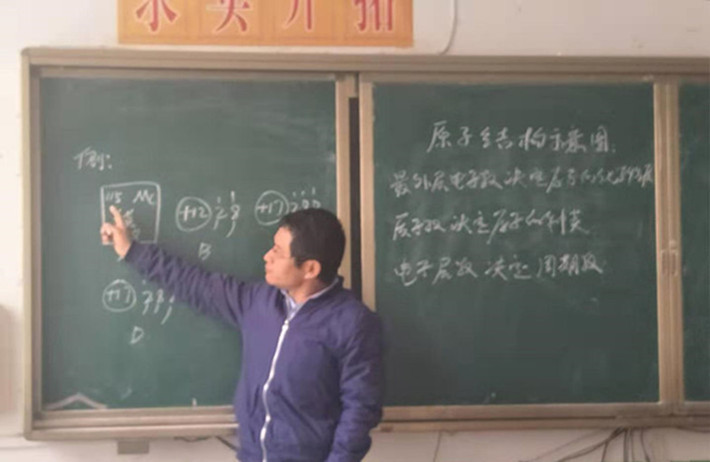 求实开拓
例:
115 Mc
+12 2 8
+17 2 8
B
+17 2 8
D
原子结构示意图:
最外层电子数决定原子的化学性质
质子数决定原子的种类
电子层数决定周期数